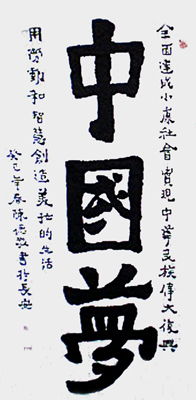 全面建成小康社會實現中華民族偉大復興
中國夢
用勞動和智慧創造美好的生活
癸巳年春陳德敬書於長安